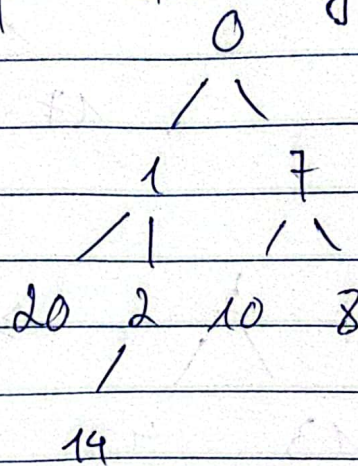 0
1 7
20 2 10 8
14